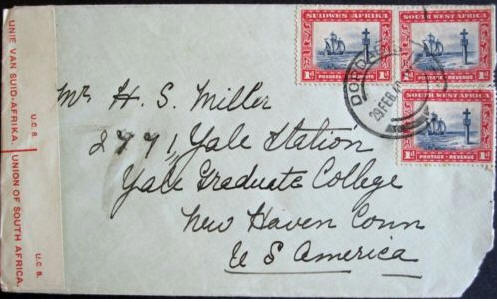 UNIE VAN SUID-AFRIKA.
UNION OF SOUTH AFRICA.
U.C.B.
U.C.B.
SUIDWES AFRIKA
1D 1D
SOUTH WEST AFRICA
1D POSTAGE REVENUE 1D
SOUTH WEST AFRICA
1D POSTAGE REVENUE 1D
29 FEB
Mr H. S. Miller
2771, Yale Station
Yale Graduate College
New Haven Conn
U S America